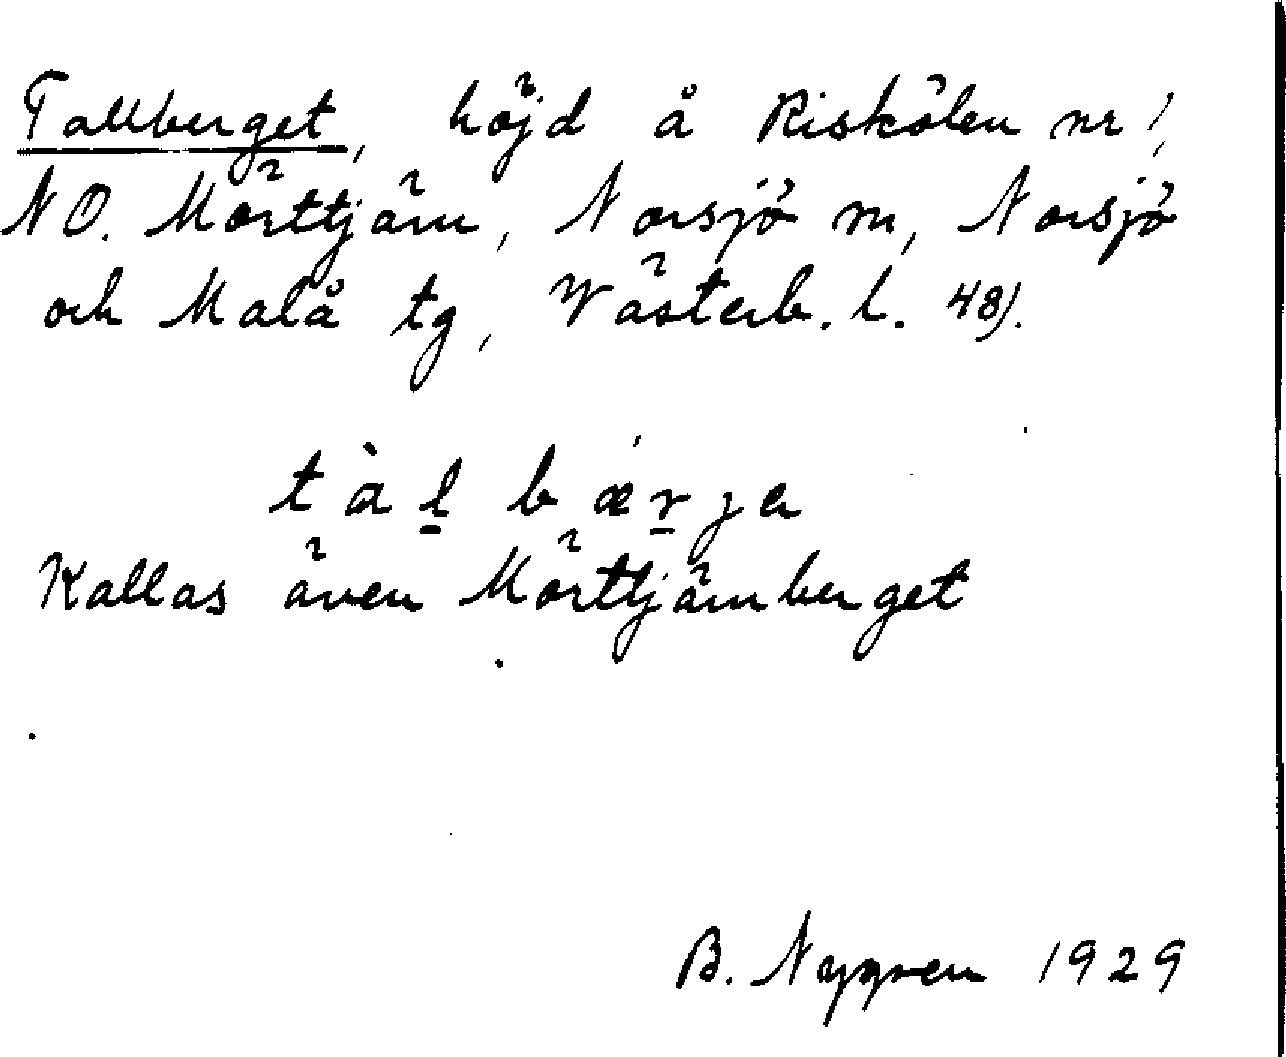 Tallberget, höjd å Riskölen nr 1,
NO. Mörttjärn, Norsjö sn, Norsjö
och Malå tg, Västerb. l. 48).
tàl̲ bær̲je
Kallas även Mörttjärnberget
B. Nygren 1929